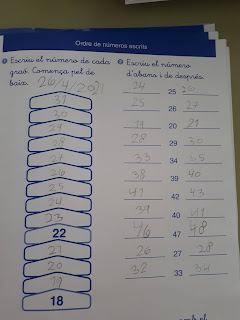 Ordre de números escrits
Escriu el número de cada
graó. Comença pel de
baix. 26/4/2021
31
30
29
28
27
26
25
24
23
22
21
20
19
18
Escriu el número
d'abans i de després.
24 25 26
25 26 27
19 20 21
28 29 30
33 34 35
38 39 40
41 42 43
39 40 41
46 47 48
26 27 28
32 33 34